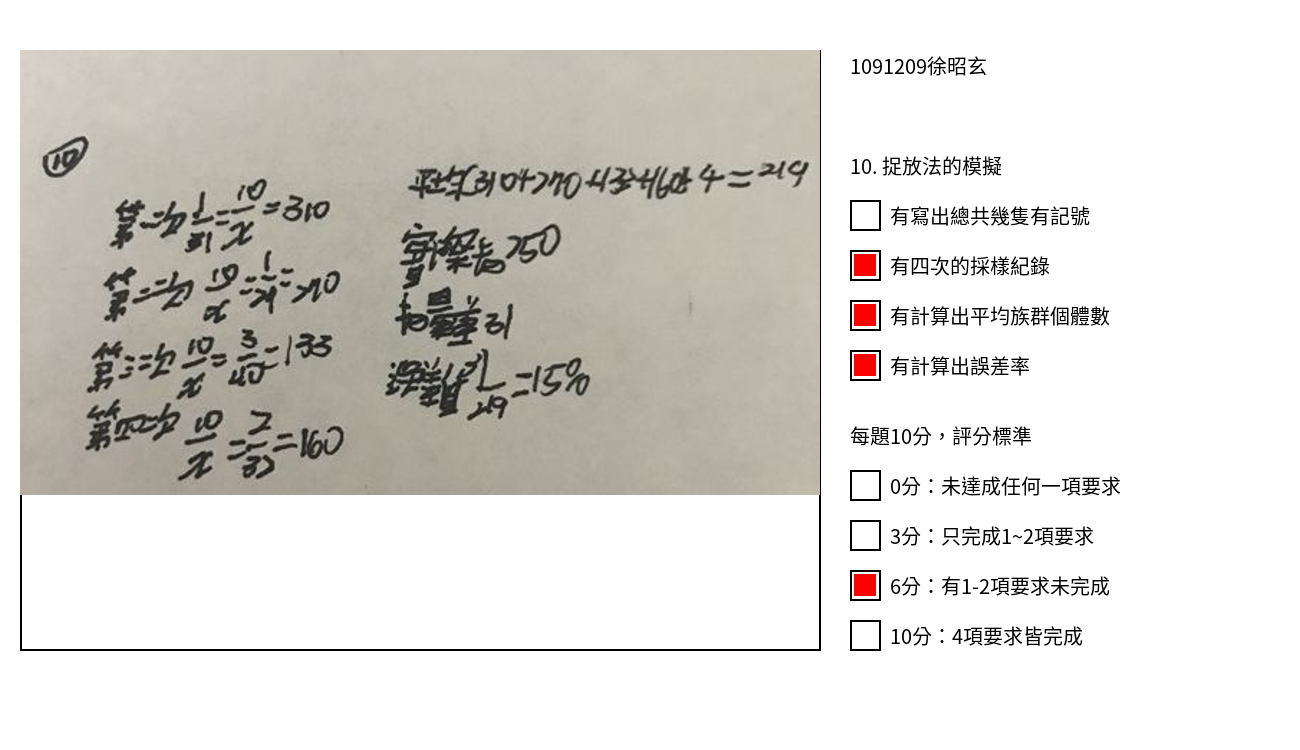 10
第一次 1/31=10/x=310
第二次 10/x=1/27=270
第三次 10/x=3/40=133
第四次 10/x=2/32=160
平均(310+270+133+160)÷4=219
實際為250
相差31
誤差值31/219=15%
1091209徐昭玄
10. 捉放法的模擬
有寫出總共幾隻有記號
有四次的採樣紀錄
有計算出平均族群個體數
有計算出誤差率
每題10分，評分標準
0分：未達成任何一項要求
3分：只完成1~2項要求
6分：有1-2項要求未完成
10分：4項要求皆完成